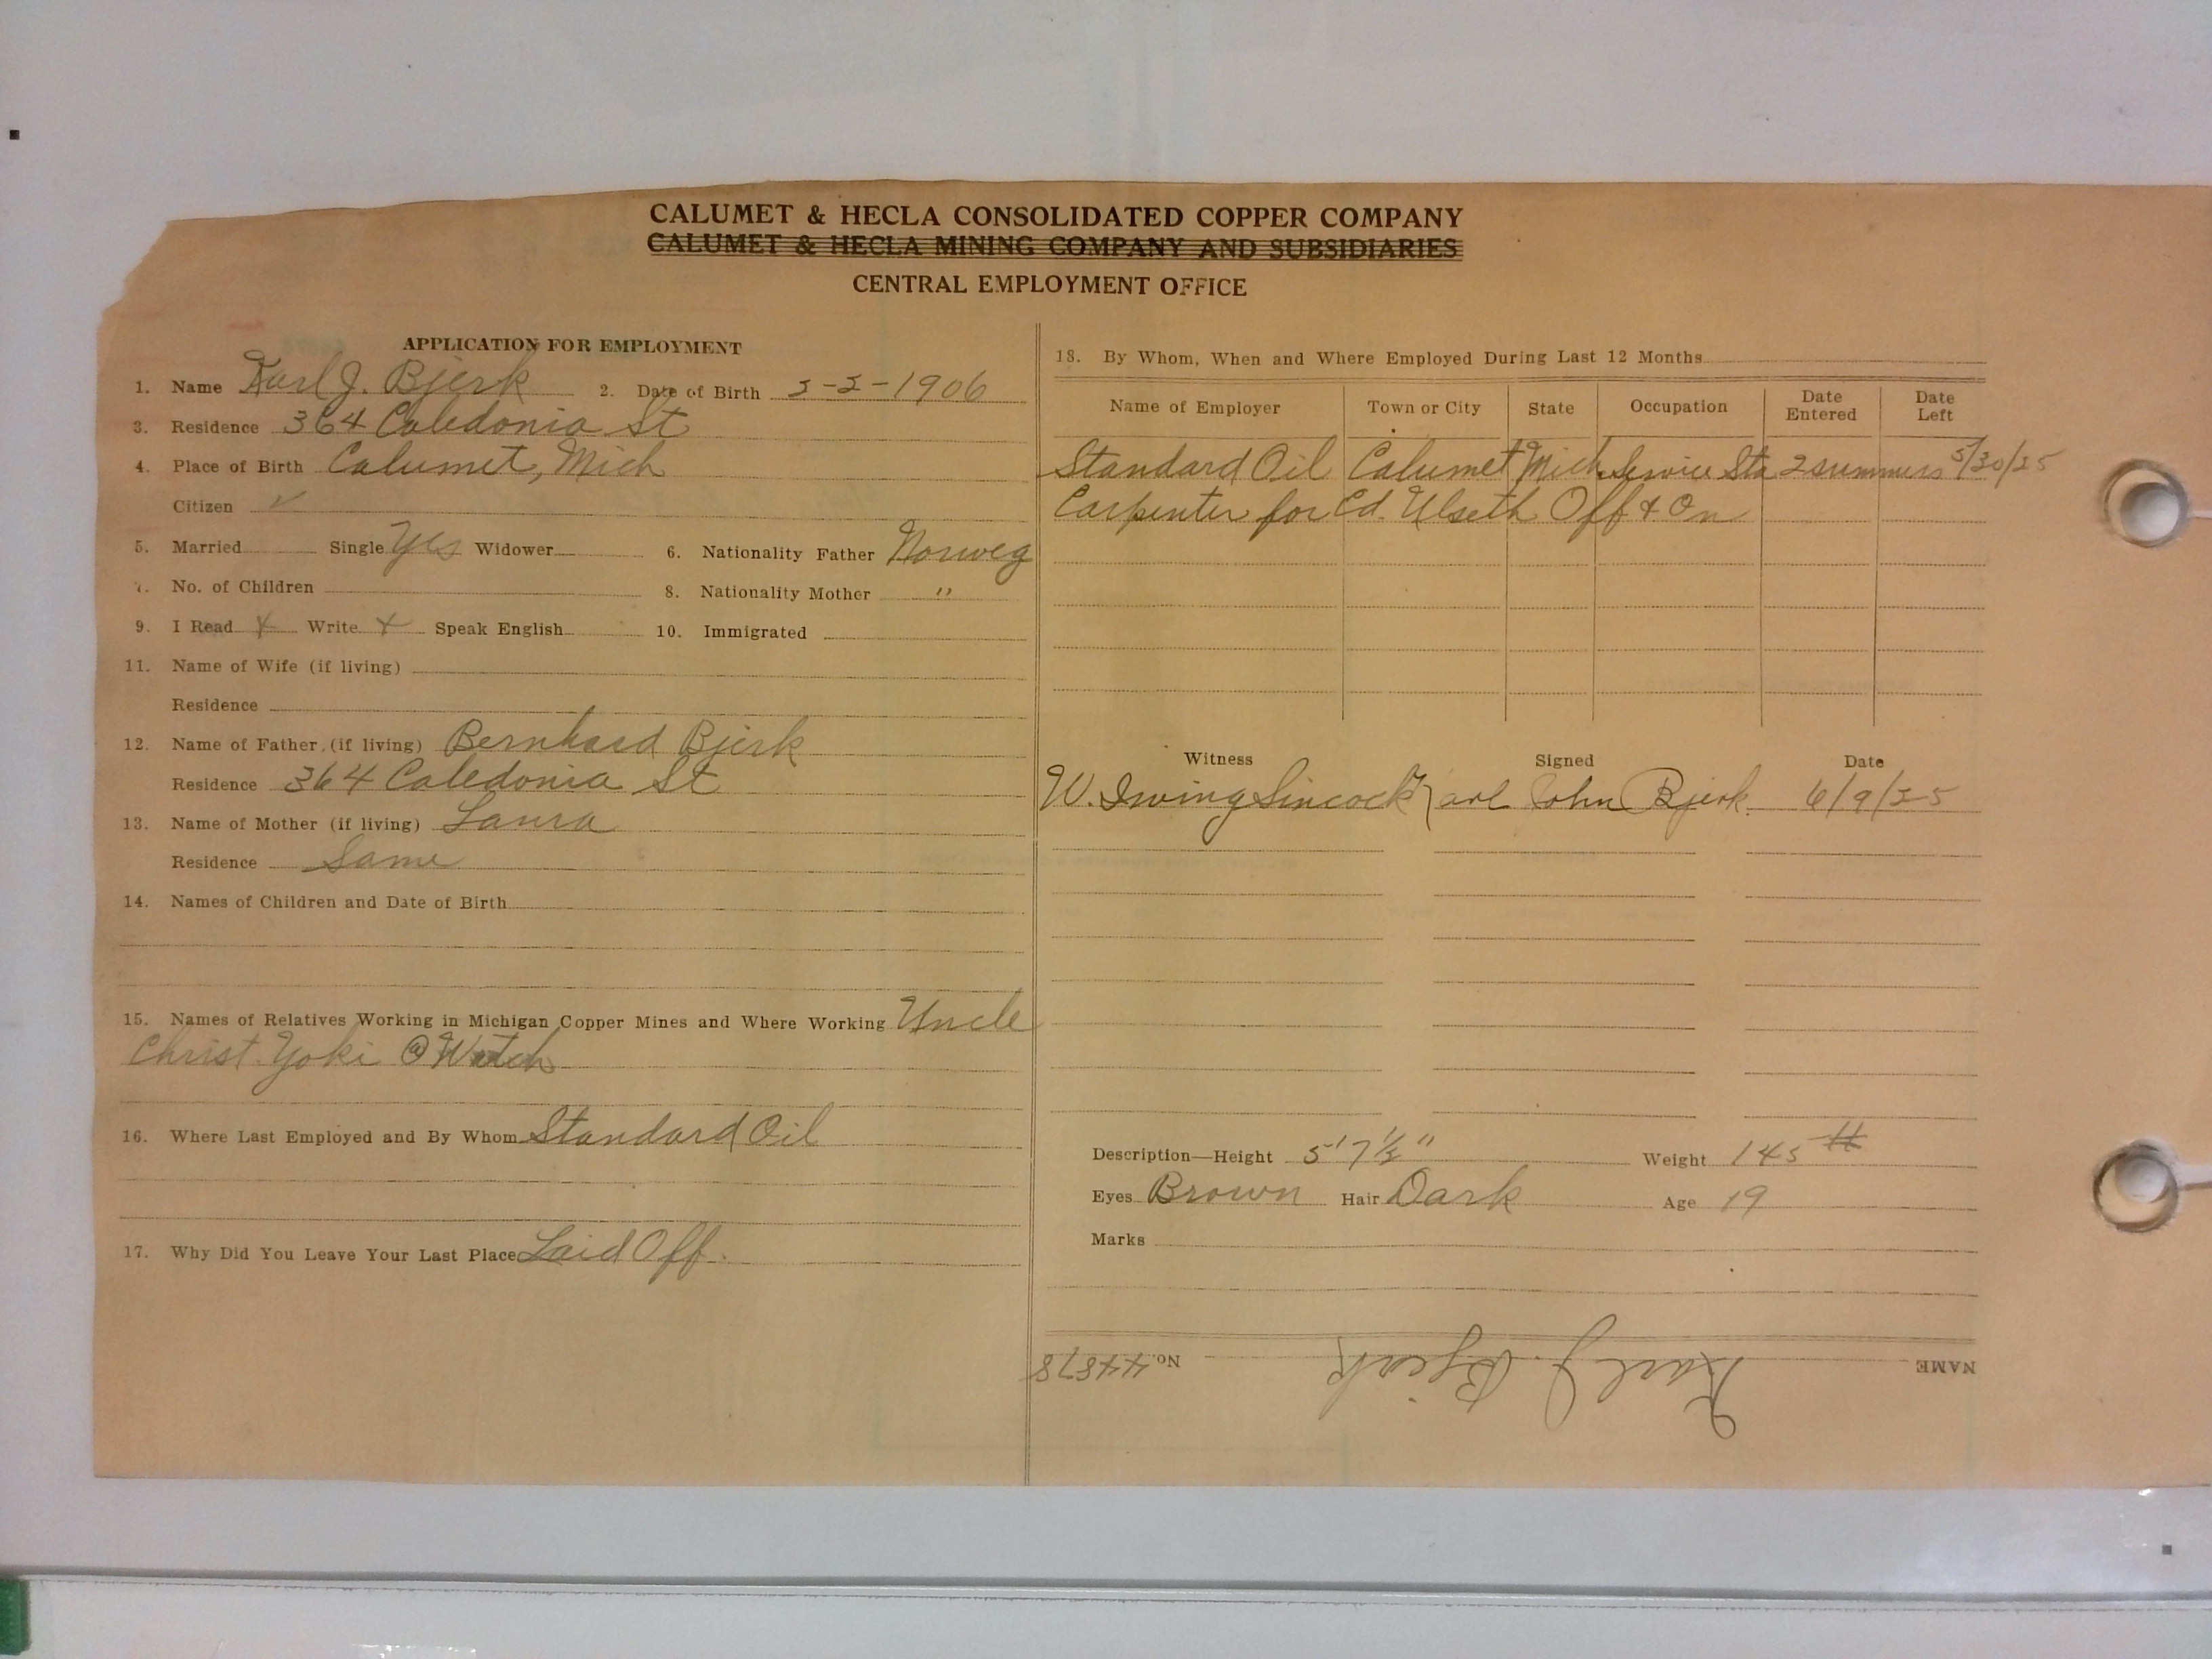 CALUMET & HECLA CONSOLIDATED COPPER COMPANY
CALUMET & HECLA MINING COMPANY AND SUBSIDIARIES
CENTRAL EMPLOYMENT OFFICE
APPLICATION FOR EMPLOYMENT
1. Name Karl J. Bjerk 2. Date of Birth 5-5-1906
3. Residence 364 Caledonia St
4. Place of Birth Calumet, Mich
Citizen ✓
5. Married Single Yes Widower 6. Nationality Father Norweg
7. No. of Children 8. Nationality Mother "
9. I Read X Write X Speak English 10. Immigrated
11. Name of Wife (if living)
Residence
12. Name of Father (if living) Bernhard Bjerk
Residence 364 Caledonia St
13. Name of Mother (if living) Laura
Residence Same
14. Names of Children and Date of Birth
15. Names of Relatives Working in Michigan Copper Mines and Where Working Uncle
Christ. Yoki @
16. Where Last Employed and By Whom Standard Oil
17. Why Did You Leave Your Last Place Laid Off.
18. By Whom, When and Where Employed During Last 12 Months
Name of Employer Town or City State Occupation Date Entered Date Left
Standard Oil Calumet Mich Service Sta 2 summers 5/30/25
Carpenter for Ed. Ulseth Off & On
Witness Signed Date
W. Irving Sincock Karl John Bjerk. 6/9/25
Description—Height 5'7½" Weight 145 #
Eyes Brown Hair Dark Age 19
Marks
NAME Karl J. Bjerk No. 44878